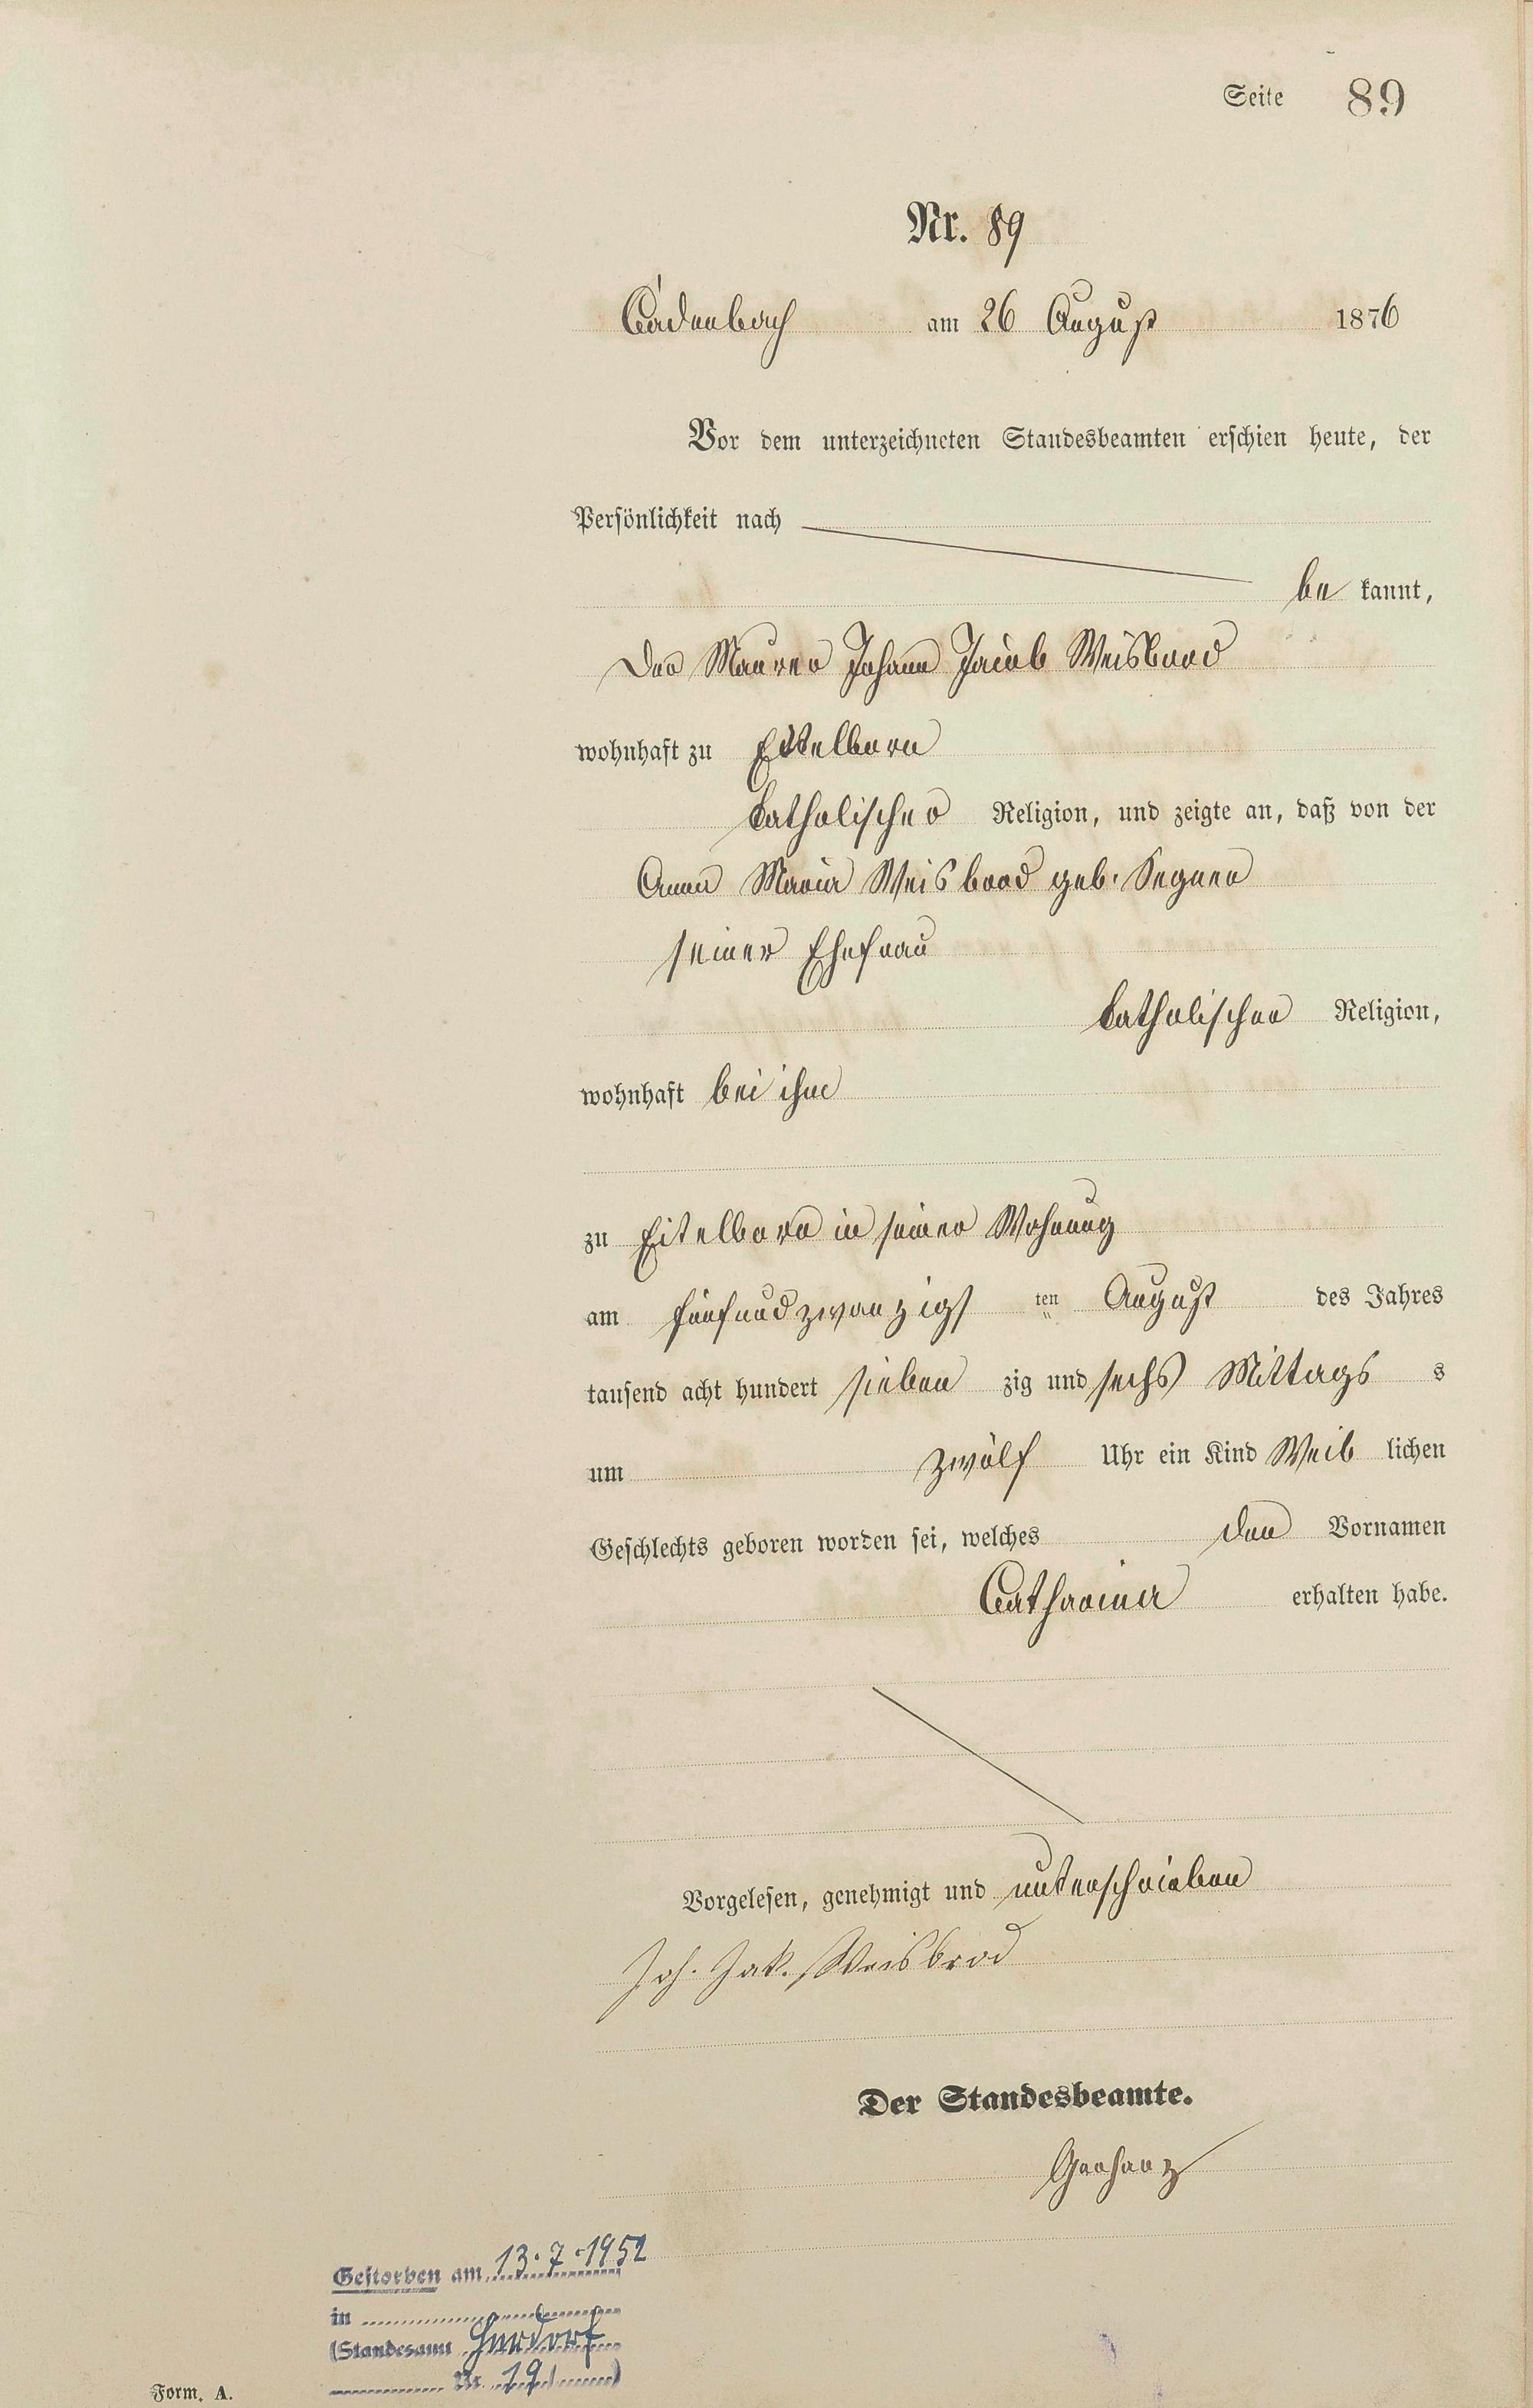 Seite 89
Nr. 89
Cadenbach am 26 August 1876
Vor dem unterzeichneten Standesbeamten erschien heute, der
Persönlichkeit nach
be kannt,
der Maurer Johann Jacob Weisbrod
wohnhaft zu Eitelborn
katholischer Religion, und zeigte an, daß von der
Anna Maria Weisbrod geb. Segner
seiner Ehefrau
katholischer Religion,
wohnhaft bei ihm
zu Eitelborn in seiner Wohnung
am fünfundzwanzigs ten August des Jahres
tausend acht hundert sieben zig und sechs Mittags s
um zwölf Uhr ein Kind Weib lichen
Geschlechts geboren worden sei, welches den Vornamen
Catharina erhalten habe.
Vorgelesen, genehmigt und unterschrieben
Joh. Jak. Weisbrod
Der Standesbeamte.
Gerharz
Gestorben am 13.7.1952
in
(Standesamt Herdorf
Nr. 19)
Form. A.